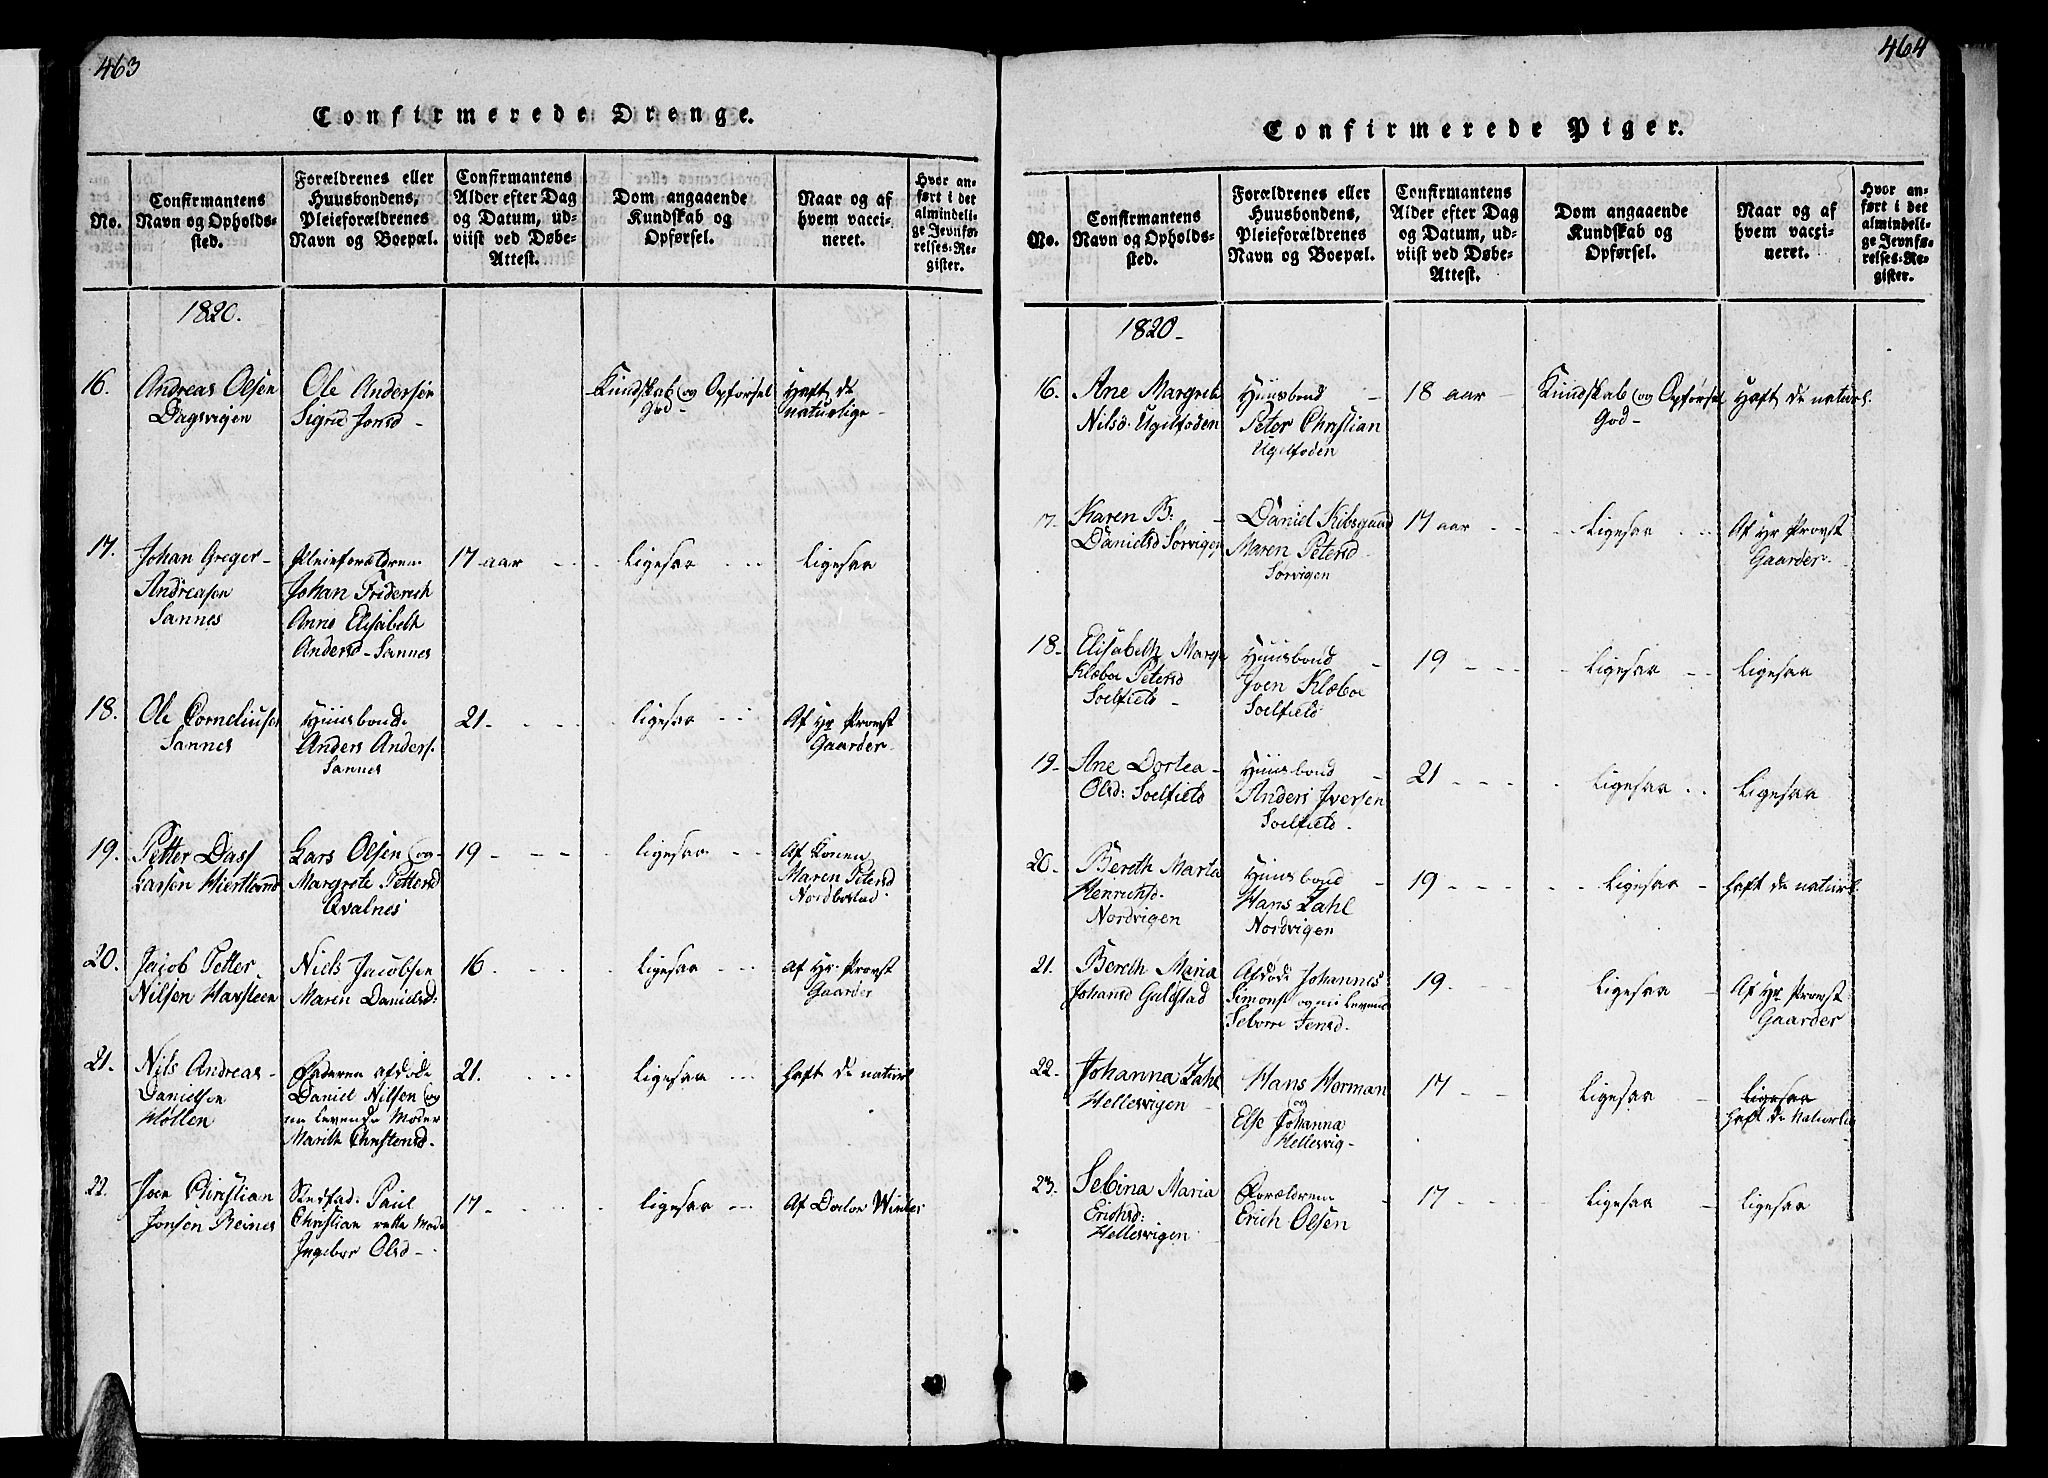 463
Confirmerede Drenge.
No.
Confirmantens
Navn og Opholds-
sted.
Forældrenes eller
Huusbondens,
Pleieforældrenes
Navn og Boepæl.
Confirmantens
Alder efter Dag
og Datum, ud-
viist ved Døbe-
Attest.
Dom angaaende
Kundskab og
Opførsel.
Naar og af
hvem vacci-
neret.
Hvor an-
ført i det
almindeli-
ge Jevnfø-
relses-Re-
gister.
1820.
16.
Andreas Olsen
Dagsvigen
Ole Andersen
Sigrid Jonsd -
Kundskab og Opførsel
God -
Haft de
naturlige -
17.
Johan Greger -
Andreasen
Sannes
Pleieforældrene
Johan Friderich
Anne Elisabeth
Andersd - Sannes
17 aar
ligesaa
ligesaa
18.
Ole Corneliusen
Sannes
Huusbonde
Anders Anders.
Sannes
21
ligesaa
Af Hr Provst
Gaarder
19.
Petter Dass
Larsen Hiertland
Lars Olsen og
Margrete Pettersd
Qvalnes
19
ligesaa
Af Konen
Maren Petersd
Nordbostad
20.
Jacob Petter
Nilsen Havsteen
Niels Jacobsen
Maren Danielsd:
16
ligesaa
Af Hr. Provst
Gaarder
21.
Nils Andreas -
Danielsen
Møllen
Faderen afdøde
Daniel Nilsen og
nu levende Moder
Marith Christensd -
21.
ligesaa
haft de naturl
22.
Joen Christian
Jonsen Reines
Stedfad: Paul
Christian rette Mode
Ingebor Olsd -
17
ligesaa
Af Doctor
464
Confirmerede Piger.
No.
Confirmantens
Navn og Opholds-
sted.
Forældrenes eller
Huusbondens,
Pleieforældrenes
Navn og Boepæl.
Confirmantens
Alder efter Dag
og Datum, ud-
viist ved Døbe-
Attest.
Dom angaaende
Kundskab og
Opførsel.
Naar og af
hvem vacci-
neret.
Hvor an-
ført i det
almindeli-
ge Jevnfø-
relses-Re-
gister.
1820 -
16.
Ane Margreth
Nilsd. Ugelfoden
Huusbond -
Peter Christian
Ugelfoden
18 aar -
Kundskab og Opførsel
God -
Haft de naturl.
17.
Karen B: -
Danielsd Sørvigen
Daniel Kibsgaard
Maren Petersd
Sørvigen
17 aar
ligesaa
Af Hr Provst
Gaarder
18 -
Elisabeth Margr
Klæboe Petersd
Soelfield -
Huusbond -
Iven Klæboe
Soelfield
19
ligesaa
ligesaa
19 -
Ane Dortea -
Olsd: Soelfield
Huusbond -
Anders Iversen
Soelfield.
21
ligesaa
ligesaa
20.
Bereth Marta
Henrichsd.
Nordvigen
Huusbond -
Hans Zahl
Nordvigen
19
ligesaa
haft de naturl.
21.
Bereth Maria
Johansd Guldstad
Afdøde Johannes
Simons. og nu levende
Jensd.
19.
ligesaa
Af Hr Provst
Gaarder
22.
Johanna Zahl
Hellesvigen
Hans Herman
og
Else Johanna
Hellesvig -
17
ligesaa
ligesaa
haft de Naturlig
23.
Sebina Maria
Erichsd:
Hellesvigen
Forældrene
Erich Olsen
17
ligesaa
ligesaa